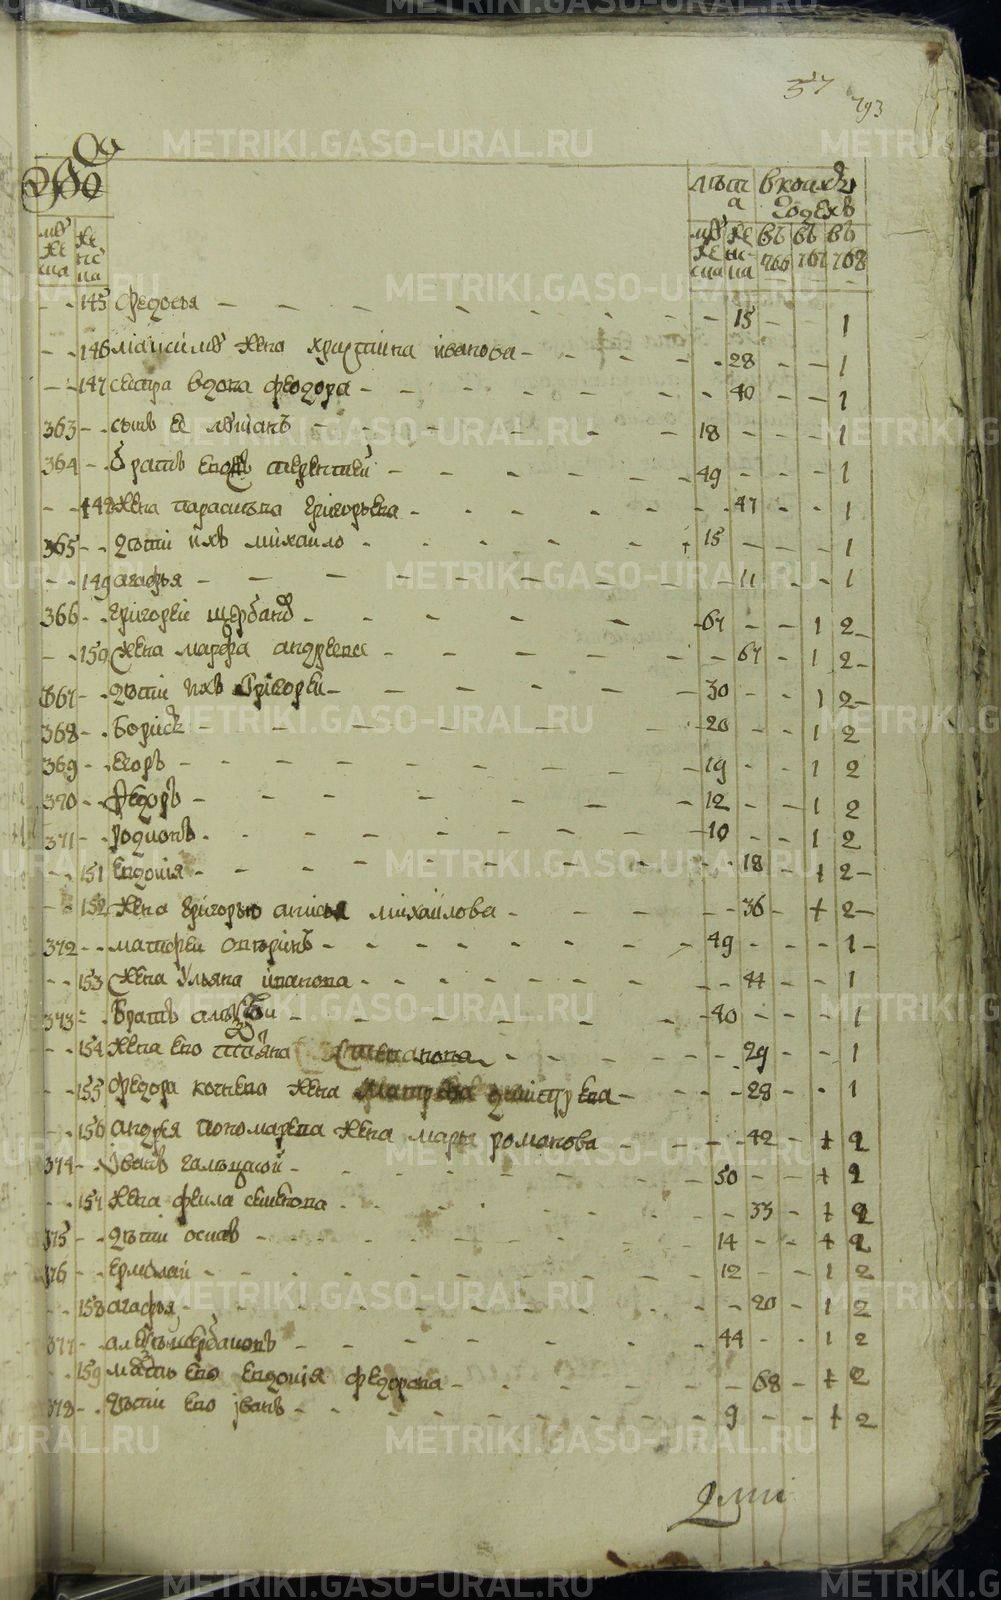 37
793
муже ска
жен ска
лета
в коих годех
муже ска
жен ска
въ 766
въ 767
въ 768
145 Федосья 15 1
146 Максиму жена Христина Иванова 28 1
147 сестра вдова Феодора 40 1
363 сынъ ее 18 1
364 братъ ево Терентей 49 1
148 жена Парасковья Григорьева 47 1
365 дети ихъ Михайло 15 1
149 Агафья 11 1
366 Григорей Щербаков 67 1 2
150 жена Марфа Андреева 67 1 2
367 дети ихъ Григорей 30 1 2
368 Борис 20 1 2
369 Егоръ 19 1 2
370 Федоръ 12 1 2
371 Родионъ 10 1 2
151 Евдокия 18 1 2
152 жена Григорью Анисья Михайлова 36 1 2
372 Матфей 49 1
153 жена Ульяна Иванова 44 1
373 братъ Алексей 40 1
154 жена ево Татьяна Степанова 29 1
155 Федора жена Матрена Дмитрева 28 1
156 Андрея Пономарева жена Марья Романова 42 1 2
374 Иванъ 50 1 2
157 жена Фекла Семенова 33 1 2
375 дети Осипъ 14 1 2
376 Ермолай 12 1 2
158 Агафья 20 1 2
377 Алексей Щербаковъ 44 1 2
159 мать ево Евдокия Федорова 68 1 2
378 дети ево Иванъ 9 1 2